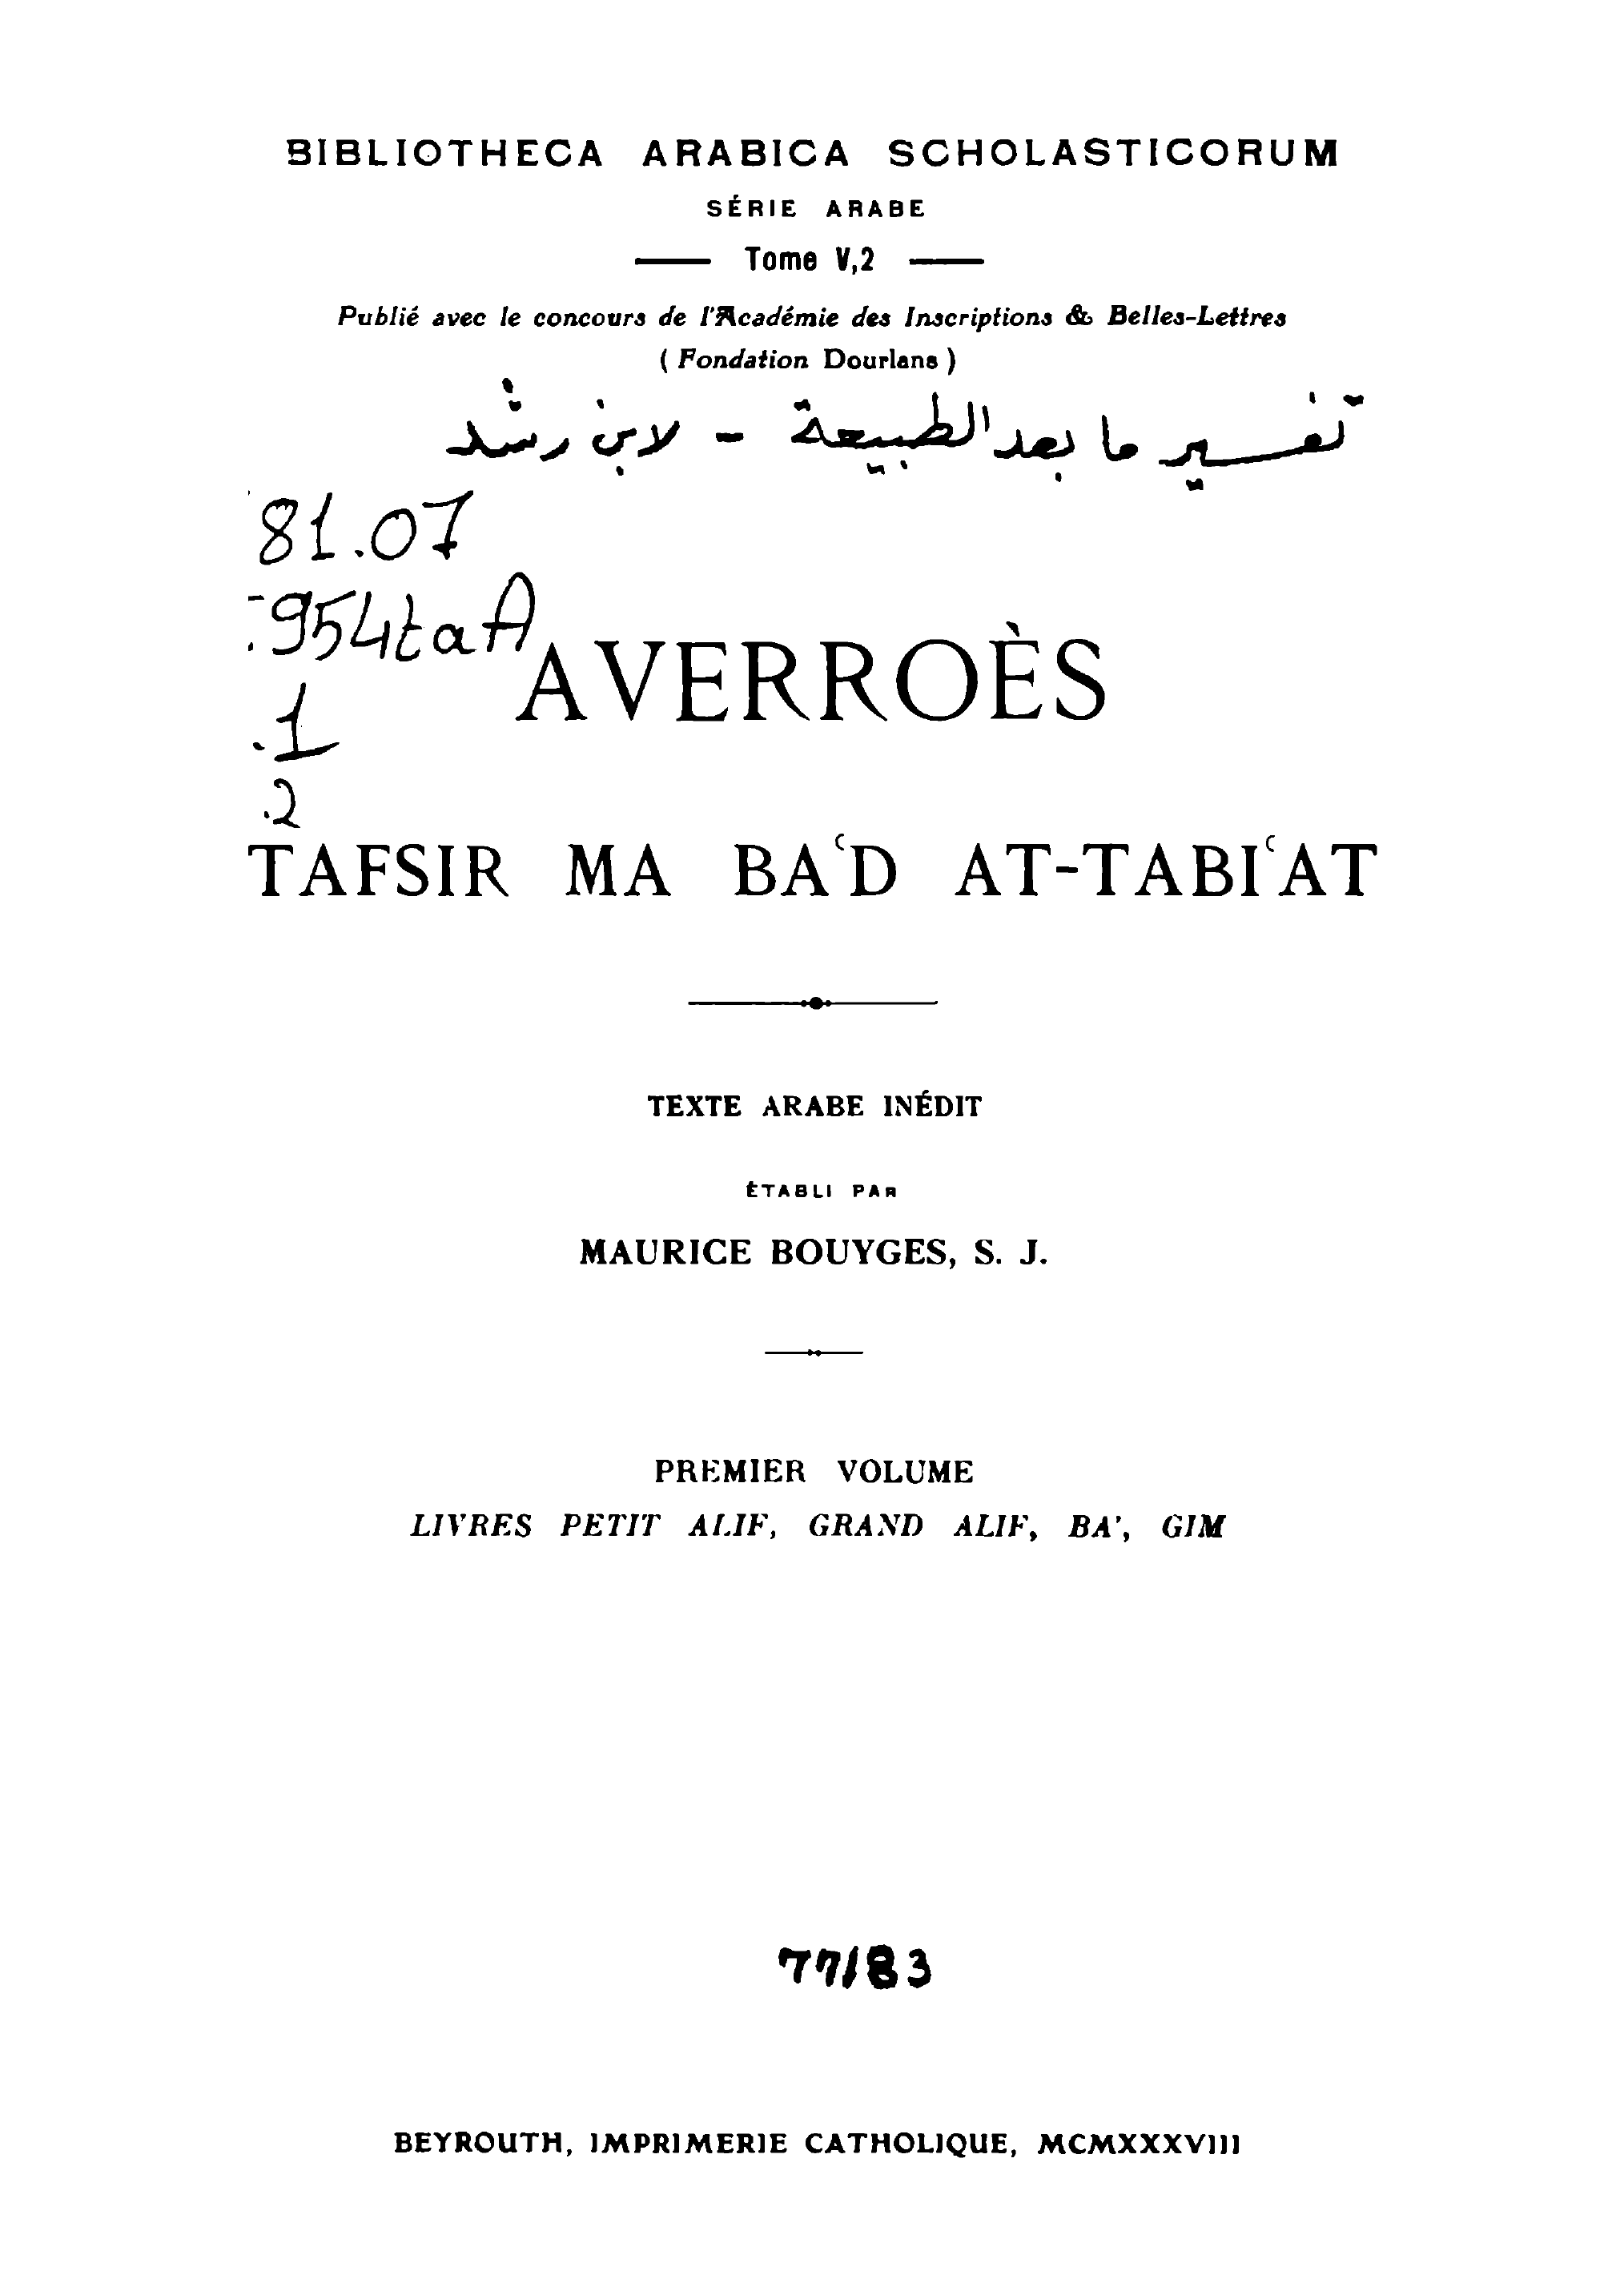 BIBLIOTHECA ARABICA SCHOLASTICORUM
SÉRIE ARABE
Tome V,2
Publié avec le concours de l'Académie des Inscriptions & Belles-Lettres
( Fondation Dourlans )
تفسير ما بعد الطبيعة - لابن رشد
81.07
954taA
.1
.2
AVERROÈS
TAFSIR MA BAʿD AT-TABIʿAT
TEXTE ARABE INÉDIT
ÉTABLI PAR
MAURICE BOUYGES, S. J.
PREMIER VOLUME
LIVRES PETIT ALIF, GRAND ALIF, BA', GIM
77/83
BEYROUTH, IMPRIMERIE CATHOLIQUE, MCMXXXVIII